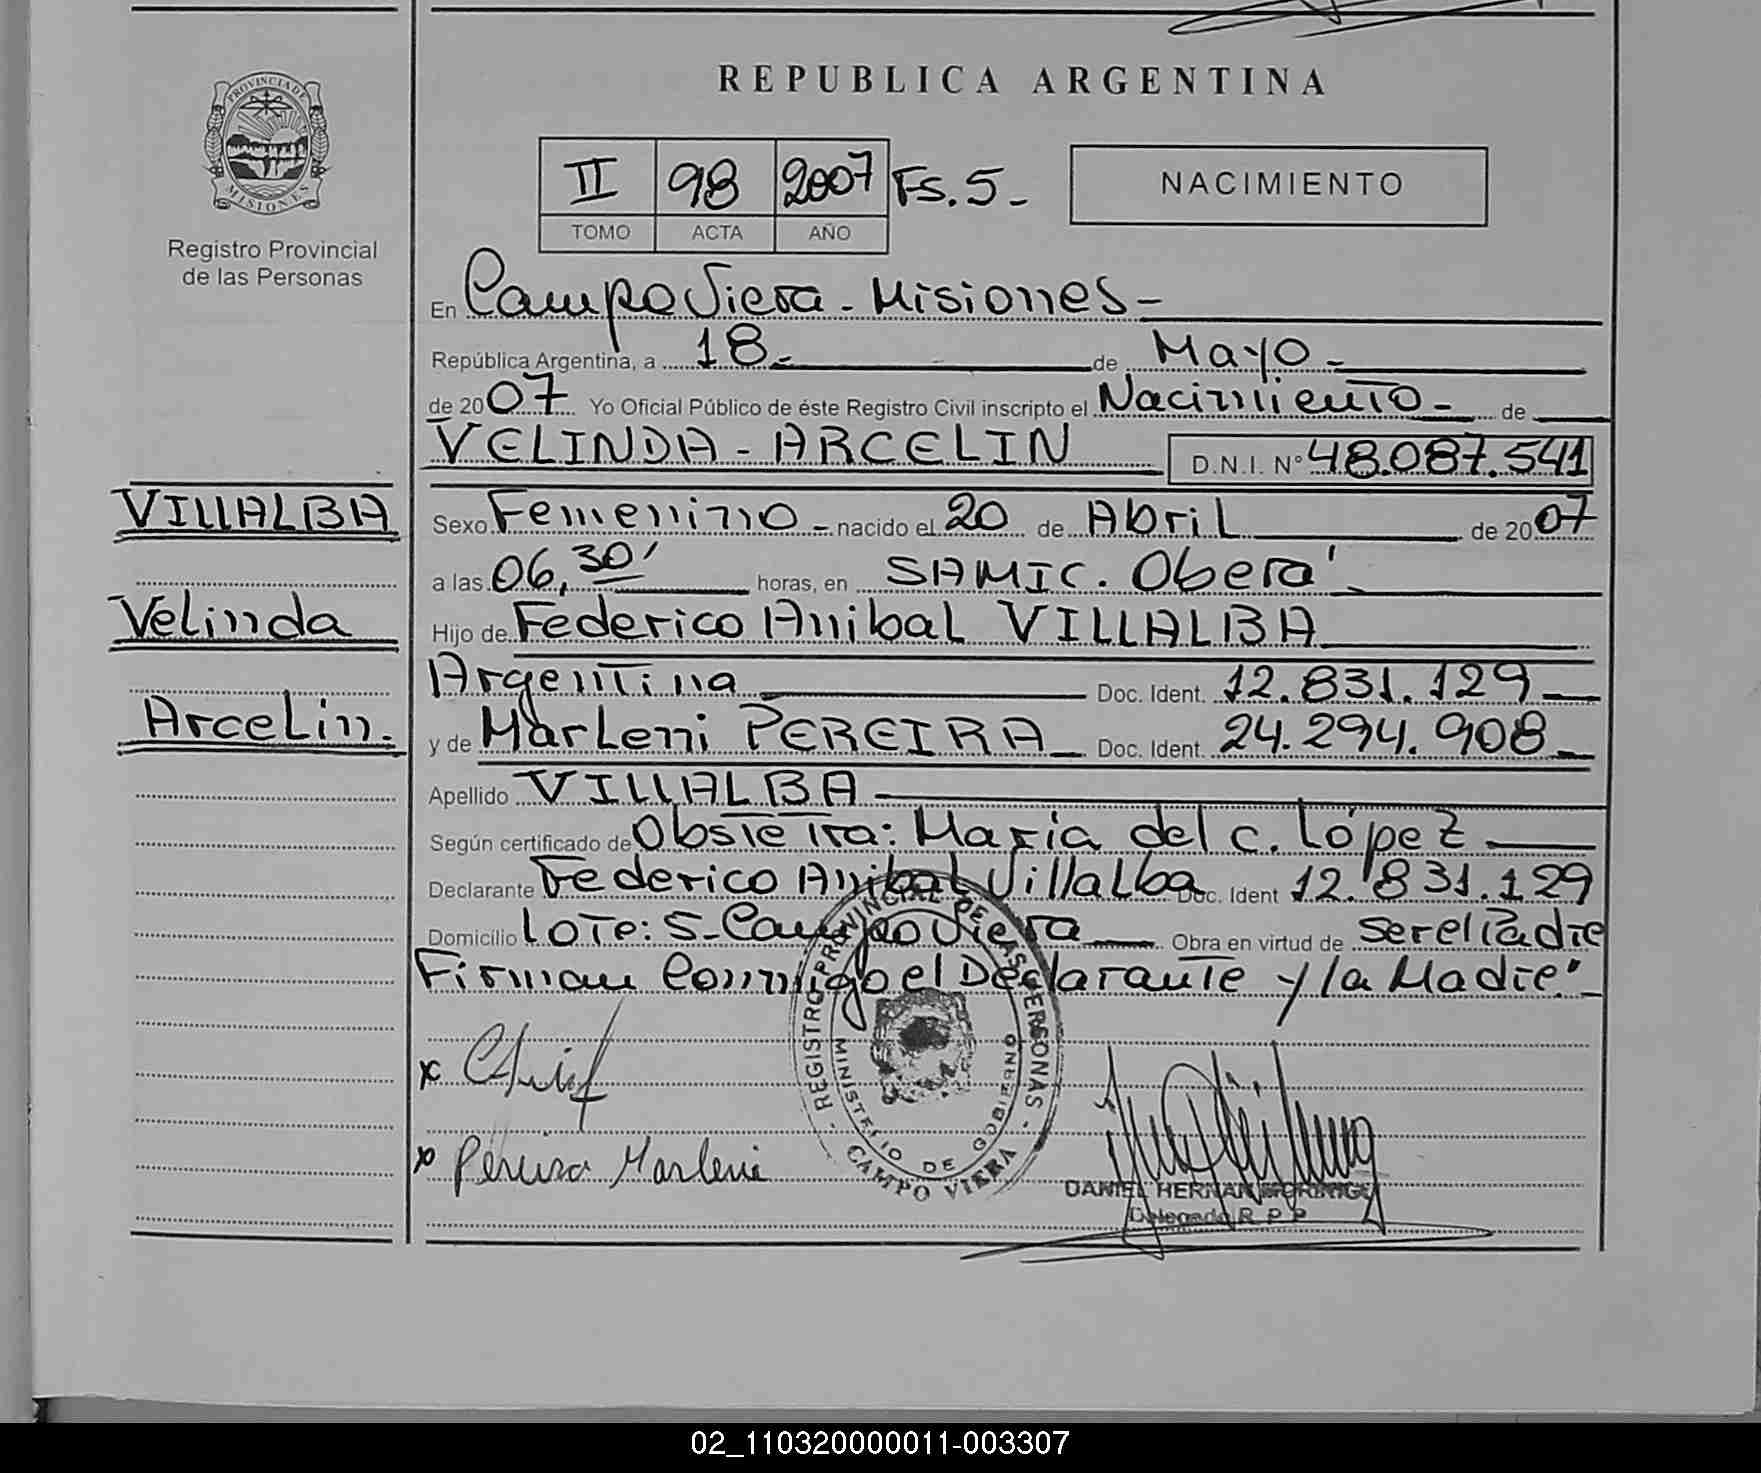 REPUBLICA ARGENTINA
PROVINCIA DE MISIONES
Registro Provincial
de las Personas
II 98 2007 Fs. 5-
TOMO ACTA AÑO
NACIMIENTO
En Campo Viera - Misiones -
República Argentina, a 18 - de Mayo -
de 20 07 Yo Oficial Público de éste Registro Civil inscripto el Nacimiento - de
VELINDA - ARCELIN D.N.I. N° 48.087.541
VILLALBA
Velinda
Arcelin.
Sexo Femenino - nacido el 20 de Abril de 20 07
a las 06,30' horas, en SAMIC. Oberá
Hijo de Federico Anibal VILLALBA
Argentina Doc. Ident. 12.831.129
y de Marleni PEREIRA Doc. Ident. 24.294.908
Apellido VILLALBA
Según certificado de Obstetra: María del C. López
Declarante Federico Anibal Villalba Doc. Ident 12.831.129
Domicilio Lote: 5 - Campo Viera Obra en virtud de ser el Padre
Firman Conmigo el Declarante y la Madre"-
x
x Pereira Marleni
REGISTRO PROVINCIAL DE LAS PERSONAS
MINISTERIO DE GOBIERNO
CAMPO VIERA
DANIEL HERNAN
Delegado R. P. P.
02_110320000011-003307